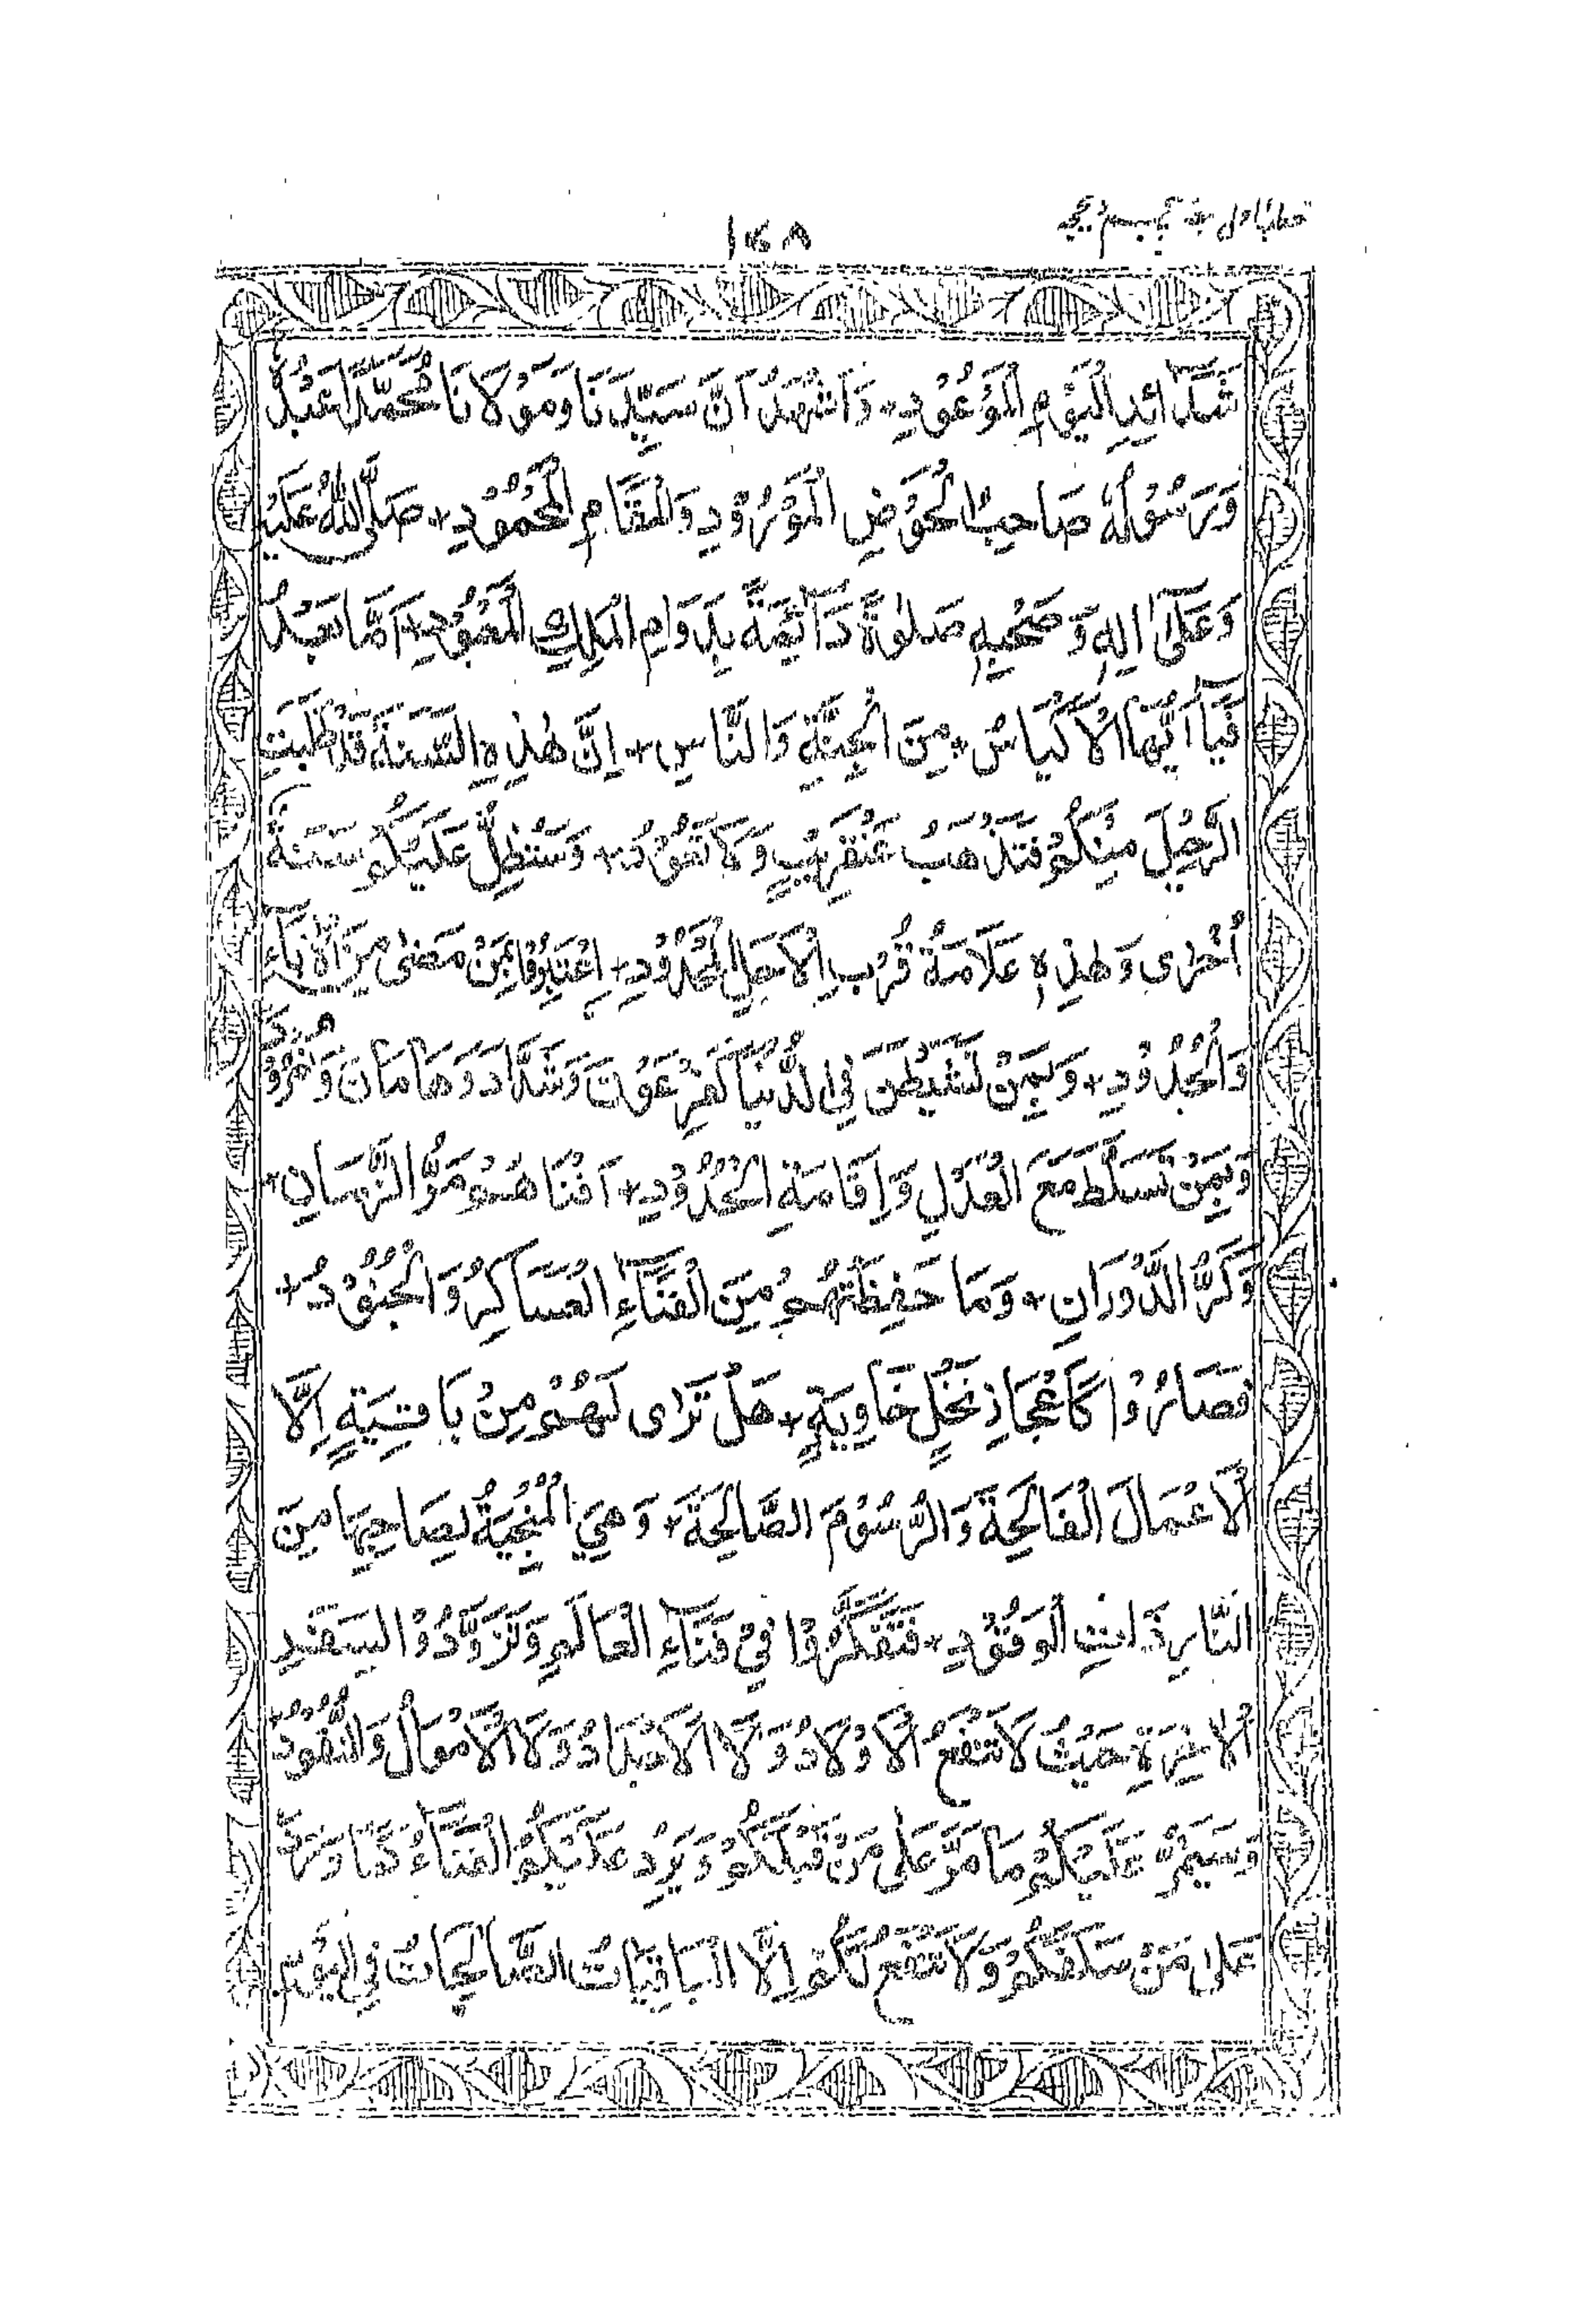 ١٤٨
شَدَآئِدِ الْيَوْمِ الْمَوْعُوْدِ + وَاَشْهَدُ اَنَّ سَيِّدَنَا وَمَوْلَانَا مُحَمَّدًا عَبْدُهٗ
وَرَسُوْلُهٗ صَاحِبُ الْحَوْضِ الْمَوْرُوْدِ وَالْمَقَامِ الْمَحْمُوْدِ + صَلَّى اللهُ عَلَيْهِ
وَعَلٰۤى اٰلِهٖ وَصَحْبِهٖ صَلٰوةً دَآئِمَةً بِدَوَامِ الْمَلِكِ الْمَعْبُوْدِ + اَمَّا بَعْدُ
فَيَاۤ اَيُّهَا الْاَكْيَاسُ + مِنَ الْجِنَّةِ وَالنَّاسِ + اِنَّ هٰذِهِ السَّنَةَ قَدْ طَلَبَتِ
الرَّحِيْلَ مِنْكُمْ فَتَذْهَبُ عَنْقَرِيْبٍ وَلَا تَعُوْدُ + وَسَتُظِلُّ عَلَيْكُمْ سَنَةٌ
اُخْرٰى وَهٰذِهٖ عَلَامَةُ قُرْبِ الْاَجَلِ الْمَحْدُوْدِ + اِعْتَبِرُوْا بِمَنْ مَضٰى مِنَ الْاٰبَآءِ
وَالْجُدُوْدِ + وَبِمَنْ تَشَيْطَنَ فِي الدُّنْيَا كَفِرْعَوْنَ وَشَدَّادَ وَهَامَانَ وَنَمْرُوْدَ
وَبِمَنْ تَسَلَّطَ مَعَ الْعَدْلِ وَاِقَامَةِ الْحُدُوْدِ + اَفْنَاهُمْ مَرُّ الزَّمَانِ +
وَكَرُّ الدَّوْرَانِ + وَمَا حَفِظَتْهُمْ مِنَ الْفَنَآءِ الْعَسَاكِرُ وَالْجُنُوْدُ +
فَصَارُوْا كَاَعْجَازِ نَخْلٍ خَاوِيَةٍ + هَلْ تَرٰى لَهُمْ مِنْ بَاقِيَةٍ اِلَّا
الْاَعْمَالَ الْفَالِحَةَ وَالرُّسُوْمَ الصَّالِحَةَ + وَهِيَ الْمُنْجِيَةُ لِصَاحِبِهَا مِنَ
النَّارِ ذَاتِ الْوَقُوْدِ + فَتَفَكَّرُوْا فِيْ فَنَآءِ الْعَالَمِ وَتَزَوَّدُوْا لِسَفَرِ
الْاٰخِرَةِ حَيْثُ لَا تَنْفَعُ الْاَوْلَادُ وَلَا الْاَمْوَالُ وَالنُّقُوْدُ
وَسَيَمُرُّ عَلَيْكُمْ مَا مَرَّ عَلٰى مَنْ قَبْلَكُمْ وَيَرِدُ عَلَيْكُمُ الْفَنَآءُ كَمَا وَرَدَ
عَلٰى مَنْ سَلَفَكُمْ وَلَا تَنْفَعُ لَكُمْ اِلَّا الْبَاقِيَاتُ الصَّالِحَاتُ فِي الْيَوْمِ